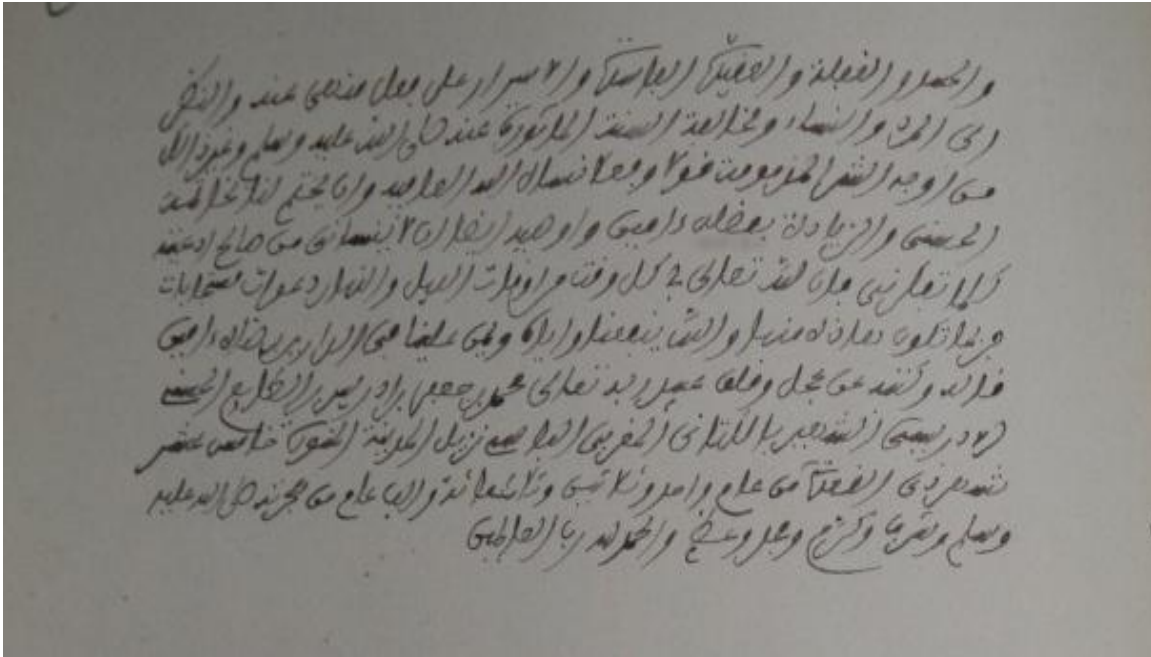 والحسد والغفلة والعقيدة الفاسدة والاصرار على فعل منهى عنه والنظر
الى المرد والنساء ومخالفة السنة المأثورة عنه صلى الله عليه وسلم وغير ذلك
من اوجه الشر المذمومة قولا وفعلا نسأل الله العافية وان يختم لنا بخاتمة
الحسنى والزيادة بفضله ءامين واوصيه ايضا ان لا ينساني من صالح ادعيته
كلما تذكرني فان لله تعالى في كل وقت من اوقات الليل والنهار دعوات مستجابات
فربما تكون هاذه منها والله ينفعنا واياه وبمن علينا في الدارين برضاه ءامين
قاله وكتبه عن عجل وقلق عبد ربه تعالى محمد بن جعفر بن ادريس بن الطايع الحسني
الادريسي الشهير بالكتاني المغربي الفاسي نزيل المدينة المنورة خامس عشر
شهر ذي القعدة من عام واحد وثلاثين وثلاثمائة والف عام من هجرته صلى الله عليه
وسلم وشرف وكرم ومجد وعظم والحمد لله رب العالمين